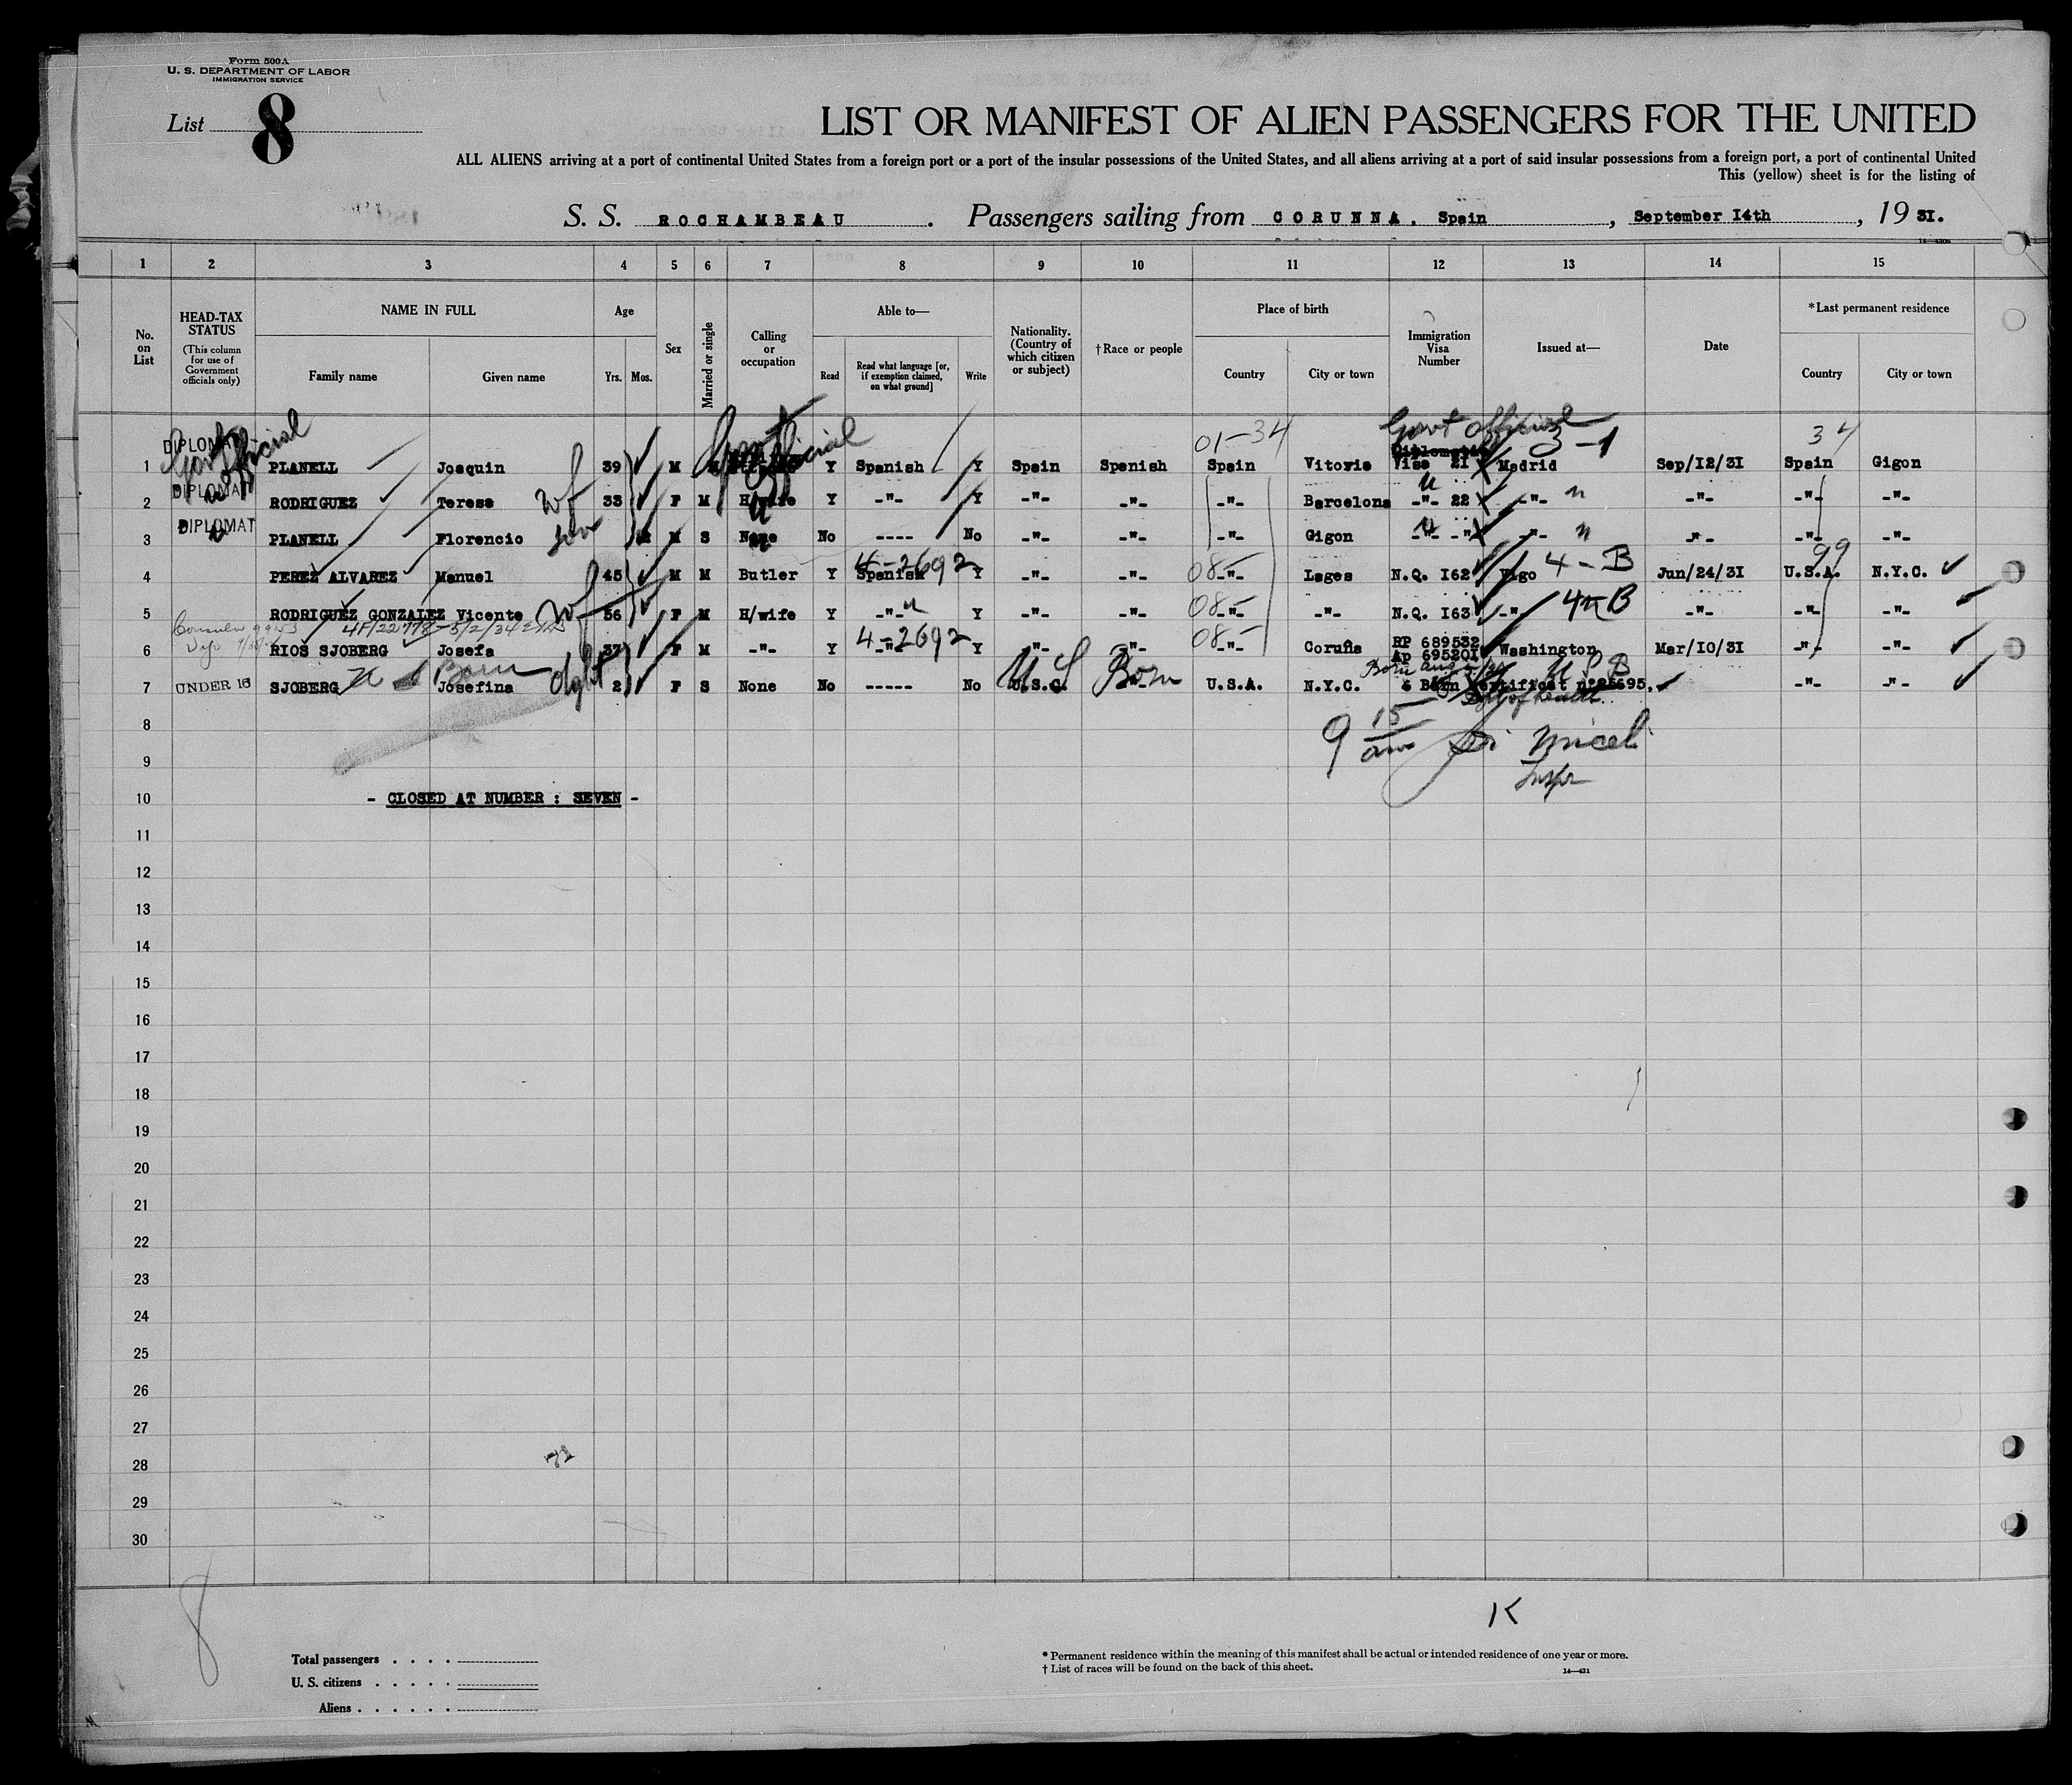 Form 500A
U. S. DEPARTMENT OF LABOR
IMMIGRATION SERVICE
List 8
LIST OR MANIFEST OF ALIEN PASSENGERS FOR THE UNITED
ALL ALIENS arriving at a port of continental United States from a foreign port or a port of the insular possessions of the United States, and all aliens arriving at a port of said insular possessions from a foreign port, a port of continental United
This (yellow) sheet is for the listing of
S. S. ROCHAMBEAU . Passengers sailing from CORUNNA. Spain , September I4th , 19 3I.
1 2 3 4 5 6 7 8 9 10 11 12 13 14 15
No. on List
HEAD-TAX STATUS
(This column for use of Government officials only)
NAME IN FULL
Family name Given name
Age
Yrs. Mos.
Sex
Married or single
Calling or occupation
Able to—
Read
Read what language [or, if exemption claimed, on what ground]
Write
Nationality. (Country of which citizen or subject)
†Race or people
Place of birth
Country City or town
Immigration Visa Number
Issued at—
Date
*Last permanent residence
Country City or town
Govt official Govt official 01-34 Govt official 3-1 34
1 DIPLOMAT PLANELL Joaquin 39 M M Y Spanish Y Spain Spanish Spain Vitoria Visa 2I Madrid Sep/I2/3I Spain Gigon
2 DIPLOMAT RODRIGUEZ Teresa wf 33 F M H/wife Y -"- Y -"- -"- -"- Barcelona -"- 22 -"- -"- -"- -"-
3 DIPLOMAT PLANELL Florencio son M S None No ---- No -"- -"- -"- Gigon -"- -"- -"- -"- -"- -"-
4-2692 99
4 PEREZ ALVAREZ Manuel 45 M M Butler Y Spanish Y -"- -"- 08- -"- Lages N.Q. I62 Vigo 4-B Jun/24/3I U.S.A. N.Y.C.
5 RODRIGUEZ GONZALEZ Vicente wf 56 F M H/wife Y -"- Y -"- -"- 08- -"- -"- N.Q. I63 -"- 4-B -"- -"- -"-
4F/22778-5/2/34
4-2692
6 RIOS SJOBERG Josefa 37 F M -"- Y -"- Y -"- -"- 08- -"- Coruña RP 689532 Ap 69520I Washington Mar/I0/3I -"- -"-
U S Born
7 UNDER 16 SJOBERG Josefina dght 2 F S None No ----- No U.S.C. -"- U.S.A. N.Y.C. Born certificat -"- -"-
8
9 15 am Miceli
9
Inspr
10 - CLOSED AT NUMBER : SEVEN -
11
12
13
14
15
16
17
18
19
20
21
22
23
24
25
26
27
28
29
30
8
K
Total passengers . . . .
U. S. citizens . . . . .
Aliens . . . . . .
* Permanent residence within the meaning of this manifest shall be actual or intended residence of one year or more.
† List of races will be found on the back of this sheet.
14—431